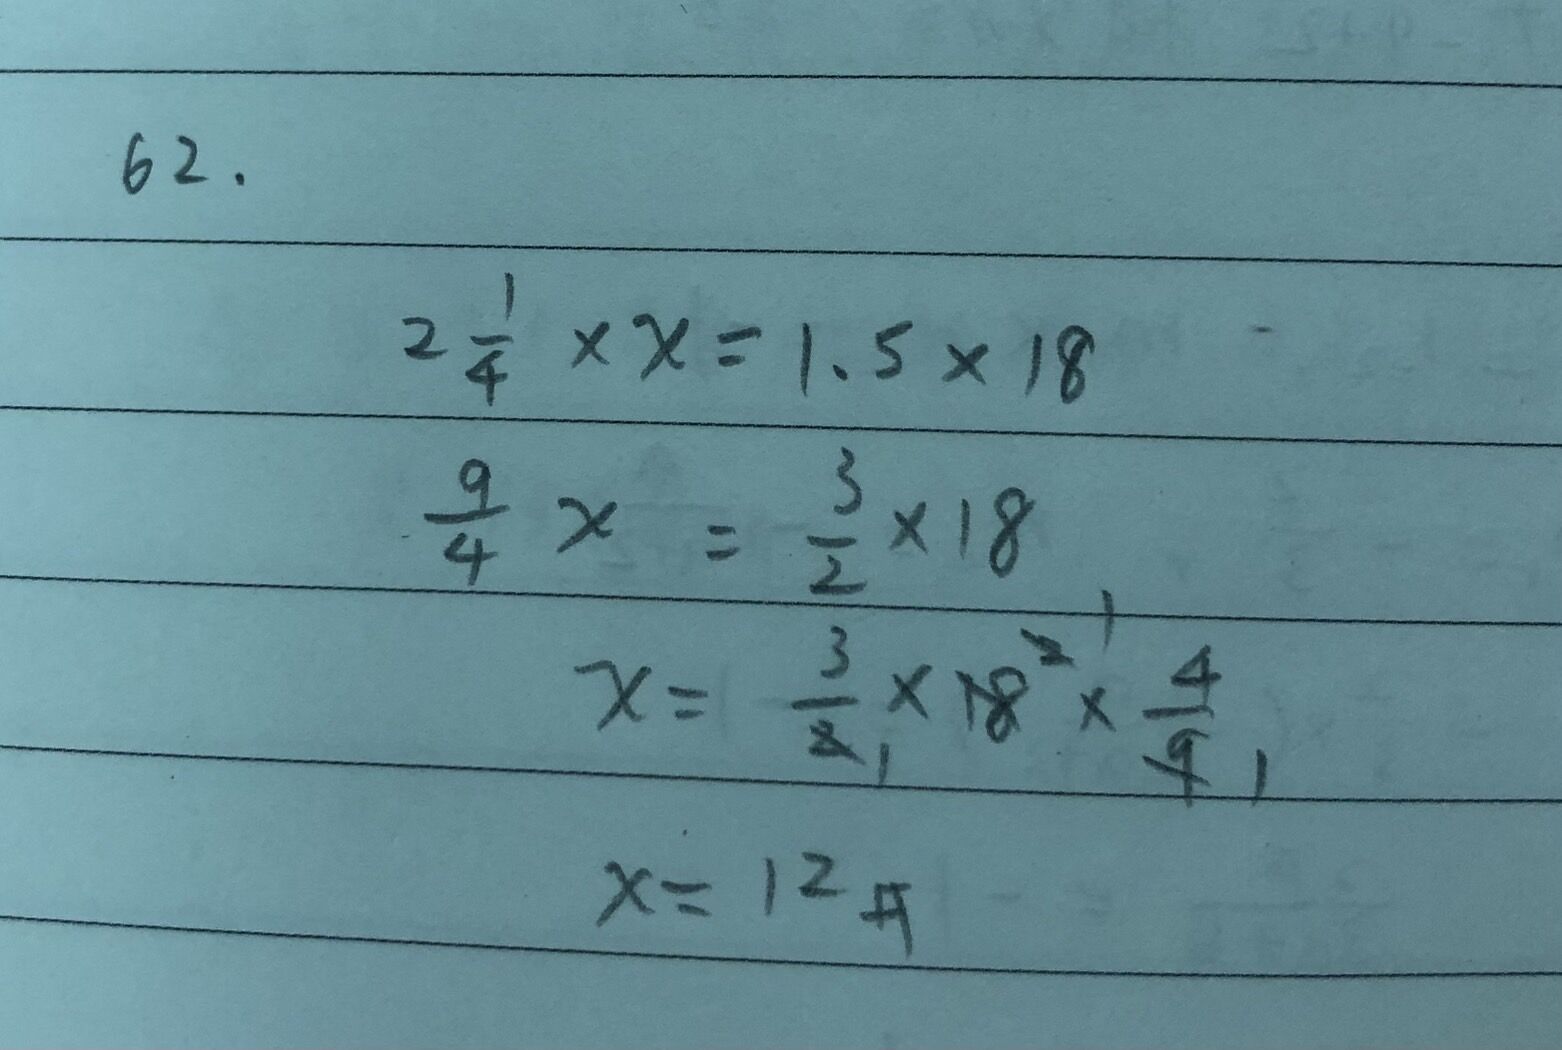 62.
2 1/4 × x = 1.5 × 18
9/4 x = 3/2 × 18
x = 3/2 1 × 18 2 × 1 4/9 1
x = 12 #